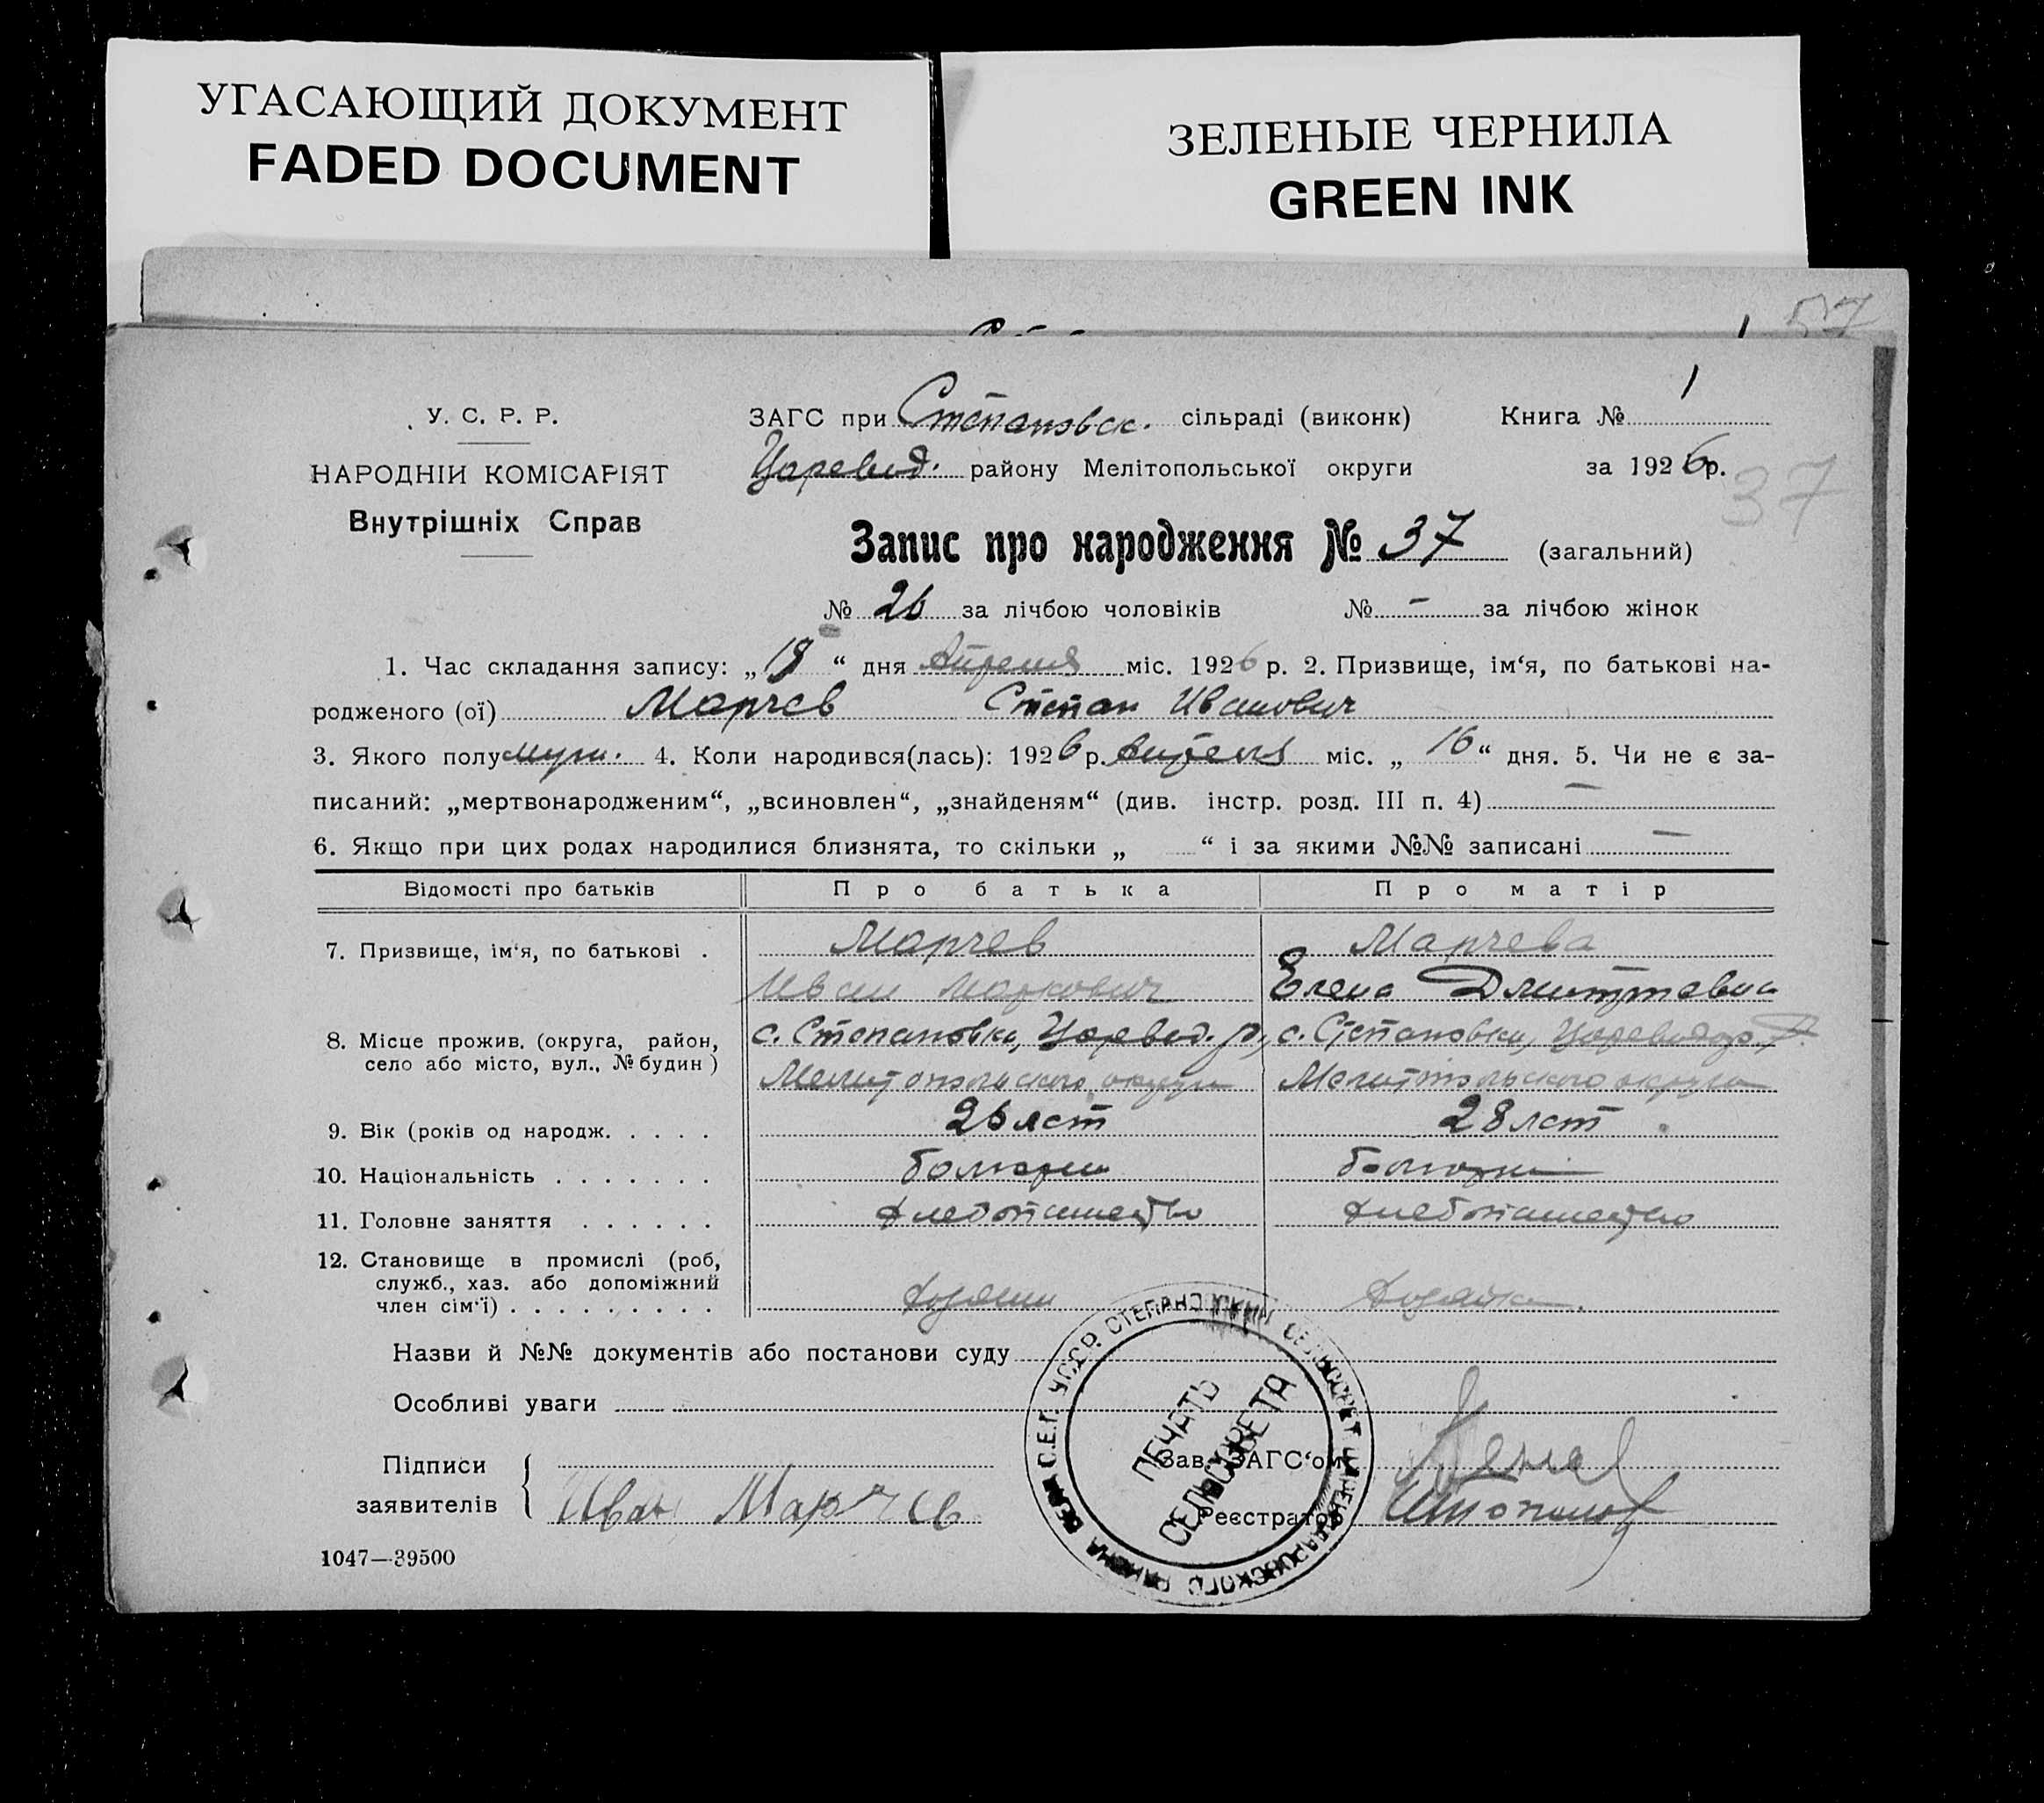 УГАСАЮЩИЙ ДОКУМЕНТ
FADED DOCUMENT
ЗЕЛЕНЫЕ ЧЕРНИЛА
GREEN INK
57
У. С. Р. Р.
НАРОДНІЙ КОМІСАРІЯТ
Внутрішніх Справ
ЗАГС при Степановск. сільраді (виконк) Книга № 1
Царевод. району Мелітопольської округи за 1926 р.
37
Запис про народження № 37 (загальний)
№ 26 за лічбою чоловіків № - за лічбою жінок
1. Час складання запису: „19“ дня Апреля міс. 1926 р. 2. Призвище, ім‘я, по батькові на-
родженого (ої) Марчев Степан Иванович
3. Якого полу муж. 4. Коли народився(лась): 1926 р. Апреля міс. „16“ дня. 5. Чи не є за-
писаний: „мертвонародженим“, „всиновлен“, „знайденям“ (див. інстр. розд. III п. 4) —
6. Якщо при цих родах народилися близнята, то скільки „ “ і за якими №№ записані —
Відомості про батьків Про батька Про матір
7. Призвище, ім‘я, по батькові . Марчев Марчева
Иван Маркович Елена Дмитриевна
8. Місце прожив. (округа, район, с. Степановка, Царевод. р., с. Степановка, Царевод. р.
село або місто, вул., № будин) Мелитопольского округа Мелитопольского округа
9. Вік (років од народж. . . . . 26 лет 28 лет
10. Національність . . . . . . . болгарин болгарка
11. Головне заняття . . . . . . хлебопашество хлебопашество
12. Становище в промислі (роб,
служб., хаз. або допоміжний
член сім‘ї) . . . . . . . . . хозяин хозяйка.
Назви й №№ документів або постанови суду
Особливі уваги
Підписи
заявителів Иван Марчев
Зав. ЗАГС‘ом
Реєстратор
ПЕЧАТЬ
СЕЛЬСОВЕТА
1047—39500